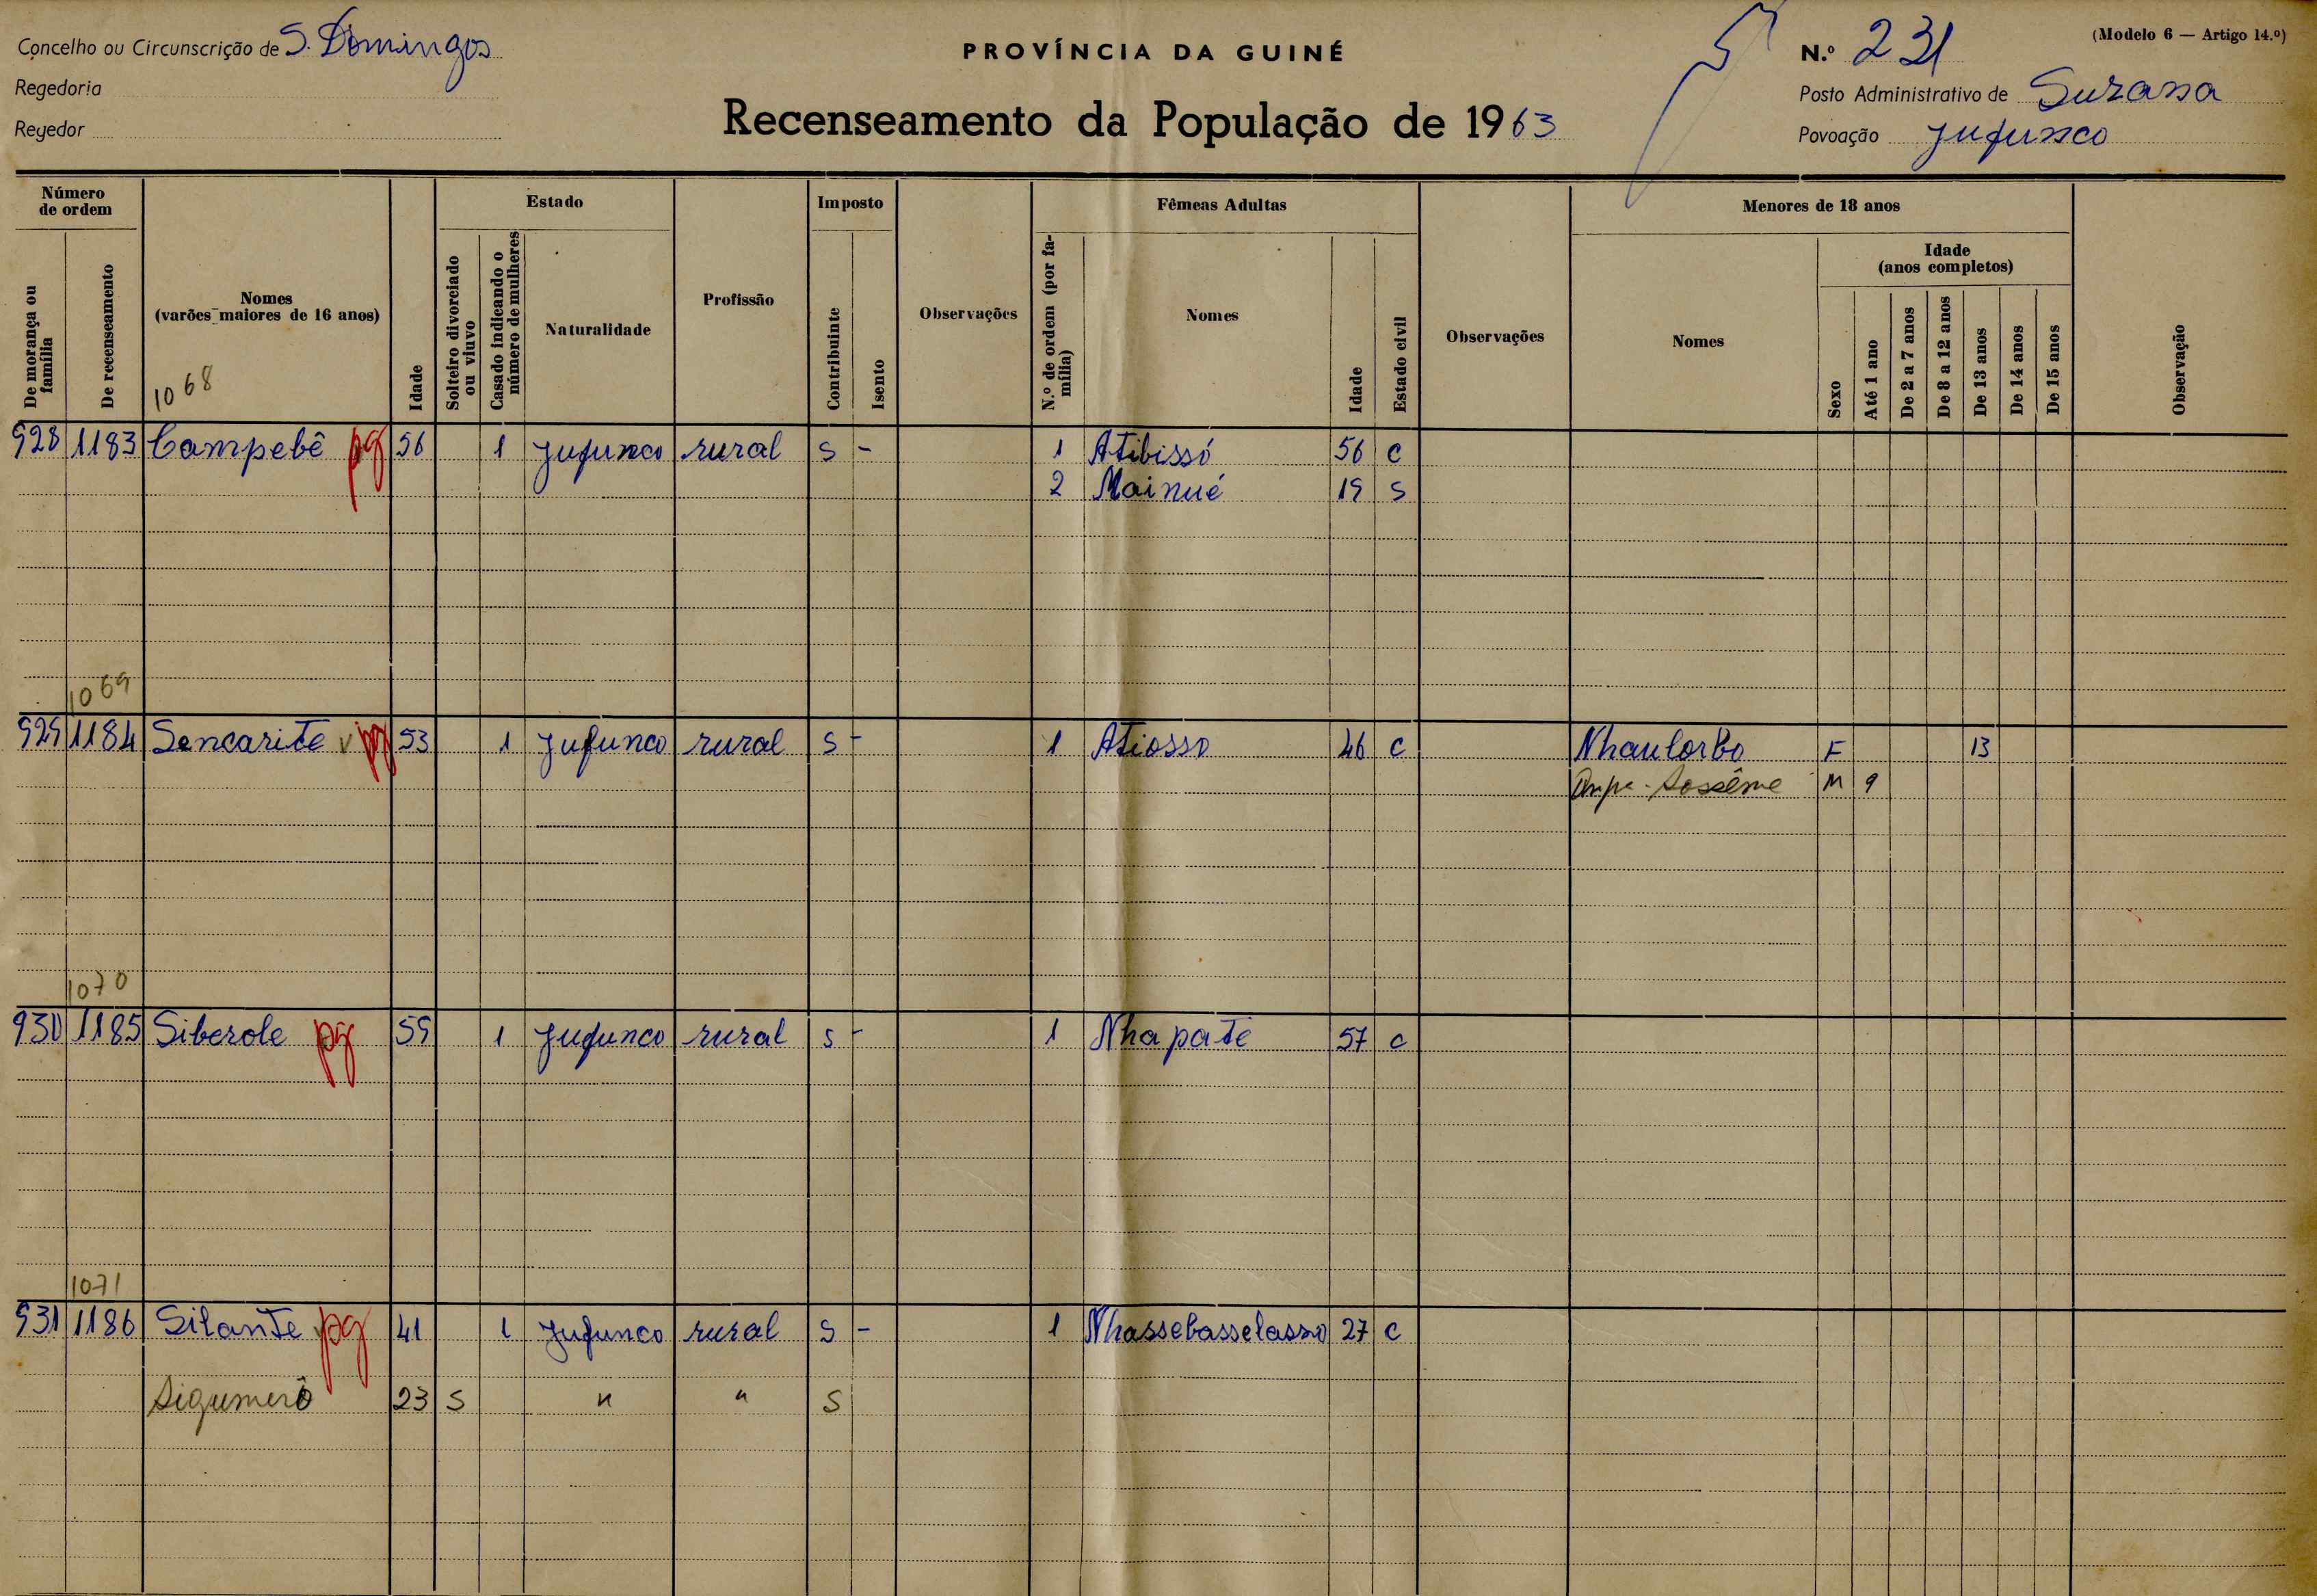 Concelho ou Circunscrição de S. Domingos
Regedoria
Regedor
PROVÍNCIA DA GUINÉ
Recenseamento da População de 1963
(Modelo 6 — Artigo 14.º)
N.º 231
Posto Administrativo de Suzana
Povoação Jufunco
Número de ordem
De morança ou família
De recenseamento
Nomes
(varões maiores de 16 anos)
1068
Idade
Estado
Solteiro divorciado ou viuvo
Casado indicando o número de mulheres
Naturalidade
Profissão
Imposto
Contribuinte
Isento
Observações
Fêmeas Adultas
N.º de ordem (por família)
Nomes
Idade
Estado civil
Observações
Menores de 18 anos
Nomes
Sexo
Idade
(anos completos)
Até 1 ano
De 2 a 7 anos
De 8 a 12 anos
De 13 anos
De 14 anos
De 15 anos
Observação
928 1183 Campebê pg 56 1 Jufunco rural s - 1 Atibissó 56 c
2 Mainué 19 s
1069
929 1184 Sencarite v pg 53 1 Jufunco rural s - 1 Atiosso 46 c Nhaulorbo F 13
Sossême M 9
1070
930 1185 Siberole pg 59 1 Jufunco rural s - 1 Nhapate 57 c
1071
931 1186 Silante pg 41 1 Jufunco rural s - 1 Nhassebasselasso 27 c
Sigumerô 23 S " " S